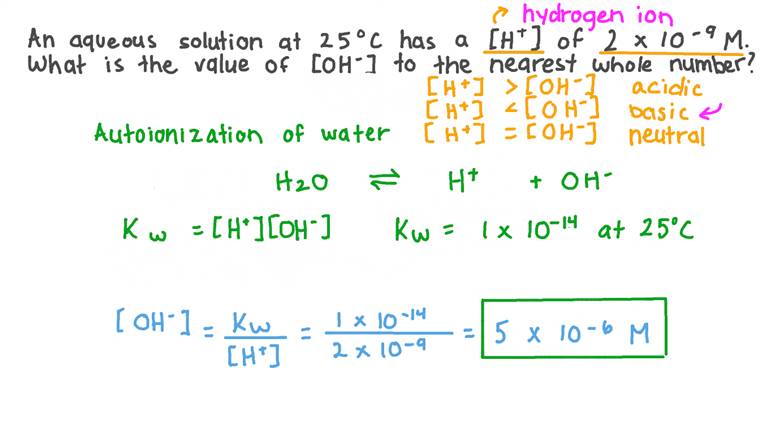 hydrogen ion
An aqueous solution at 25°C has a [H⁺] of 2 × 10⁻⁹ M.
What is the value of [OH⁻] to the nearest whole number?
[H⁺] > [OH⁻] acidic
[H⁺] < [OH⁻] basic
[H⁺] = [OH⁻] neutral
Autoionization of water
H₂O ⇌ H⁺ + OH⁻
Kw = [H⁺][OH⁻] Kw = 1 × 10⁻¹⁴ at 25°C
[OH⁻] = Kw / [H⁺] = 1 × 10⁻¹⁴ / 2 × 10⁻⁹ = 5 × 10⁻⁶ M